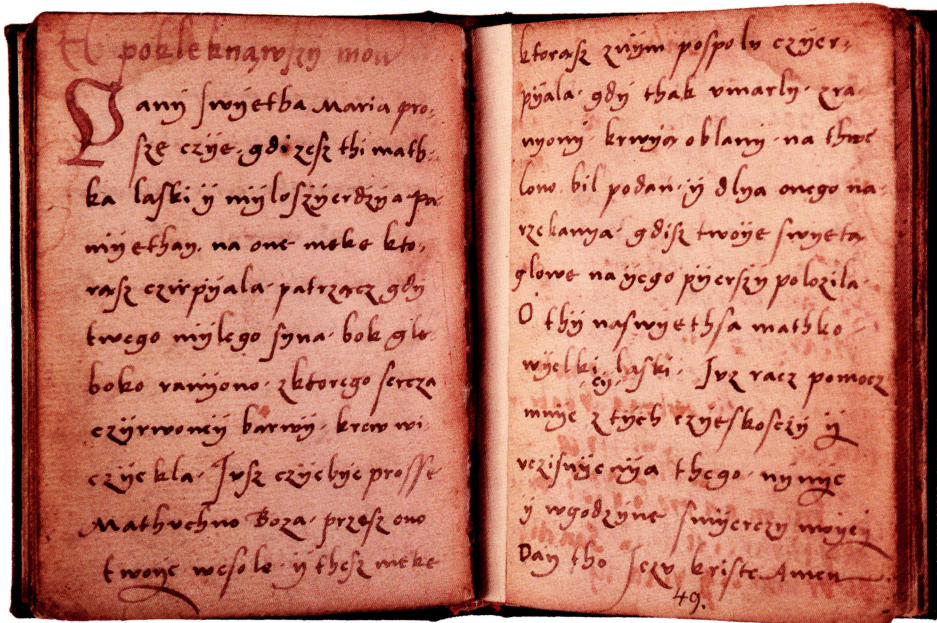 pokleknąwszy mow
Pany swyetha Maria pro-
sze czye, gdi zesz thi math-
ka laski ÿ mÿloszÿerdzÿa pa-
mÿethaÿ, na one meke kto-
rąsz czirpÿala, patrzącz gdÿ
twego mÿlego sÿna, bok glę-
boko ranÿono, zktorego sercza
czÿrwoneÿ barwÿ, krew wi
czÿekla, Jusz czÿebÿe prosse
Mathuchno Boza, przesz ono
twoÿe wesole, ÿ thesz meke
ktorasz znÿm pospolu czÿer-
pÿala, gdÿ thak vmarlÿ, zra-
nÿonÿ, krwÿą oblanÿ, na thwe
lono bil podan, ÿ dlya onego na-
rzekanÿa, gdisz twoÿe swÿetą
glowe na ÿego pÿerszÿ polozila,
O thÿ naswÿethsa mathko
wÿelkieÿ laski, Juz racz pomocz
mnÿe z tÿch czÿeskosczÿ ÿ
vczisnÿenÿa thego, nÿnÿe
ÿ wgodzÿne smÿerczÿ moÿeÿ
Daÿ tho Jezu kriste Amen
49.